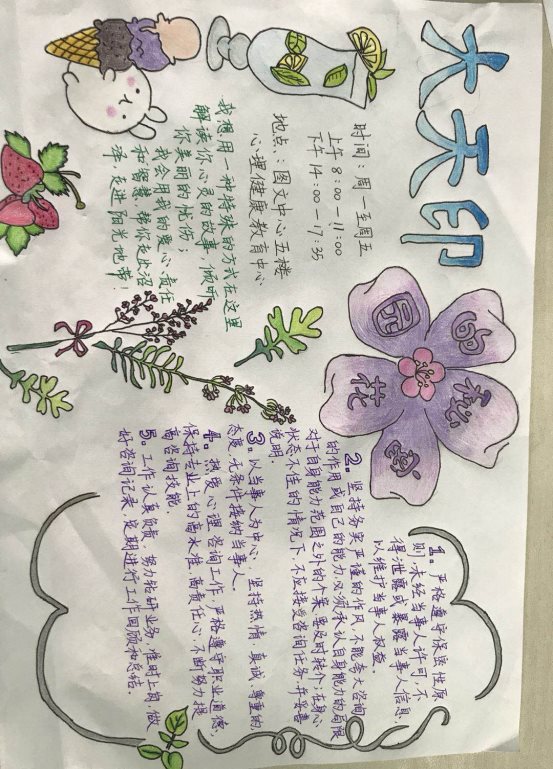 大天印
时间：周一至周五
上午 8:00—11:00
下午 14:00—17:35
地点：图文中心五楼
心理健康教育中心
我想用一种特殊的方式在这里
解读你心灵的故事，倾听
你美丽的忧伤；
我会用我的爱心、责任
和智慧，帮你走出沼
泽，走进阳光地带！
的
秘
密
花
园
1。严格遵守保密性原
则，未经当事人许可，不
得泄露或暴露当事人信息，
以维护当事人权益。
2。坚持务实严谨的作风，不能夸大咨询
的作用或自己的能力，必须承认自身能力的局限，
对于自身能力范围之外的个案要及时转介；法身心
状态不佳的情况下，不应接受咨询任务，并妥善
说明。
3。以当事人为中心，坚持热情、真诚、尊重的
态度，无条件接纳当事人。
4。热爱心理咨询工作，严格遵守职业道德，
保持专业上的高水准、高责任心，不断努力提
高咨询技能。
5。工作认真负责，努力钻研业务，准时上岗，做
好咨询记录，定期进行工作回顾和总结。